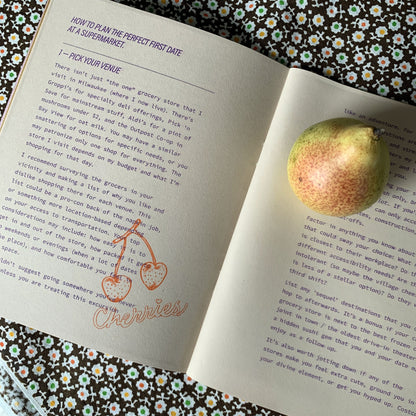 HOW TO PLAN THE PERFECT FIRST DATE
AT A SUPERMARKET.
1 – PICK YOUR VENUE
There isn't just "the one" grocery store that I
visit in Milwaukee (where I now live). There's
Cuppi's for specialty deli offerings, Pick 'n
Save for mainstream stuff, Aldi's for a pint of
mushrooms under $2, and the Outpost Co-op in
my view for oat milk. You may have a similar
scattering of options for specific needs, or you
may patronize only one shop for everything. The
store I visit depends on my budget and what I'm
shopping for that day.
I recommend surveying the grocers in your
vicinity and making a list of why you like and
dislike shopping there for each venue. This
list could be a pro-con back of the napkin job,
or something more location-based depending
on your access to transportation. Top
considerations may include: how easy is it to
get in and out of the store, how packed it gets
weekends or evenings (when a lot of dates
place), and how comfortable you
suggest going somewhere
unless you are treating this excursion
Cherries
like an adventure.
can
only
Factor in anything you know about
that could sway your choice. What
is closest to their workplace? Do
different accessibility needs? Are
intolerant (so maybe the Village
is less of a stellar option)? Do they
third shift?
List any "sequel" destinations that you
hop to afterwards. It's a bonus if your
grocery store is next to the best frozen
joint in town / the oldest drive-in theat
hidden sushi gem that you and your date
enjoy as a follow up.
It's also worth jotting down if any of the
stores make you feel extra cute, ground you in
your divine element, or get you hyped up.